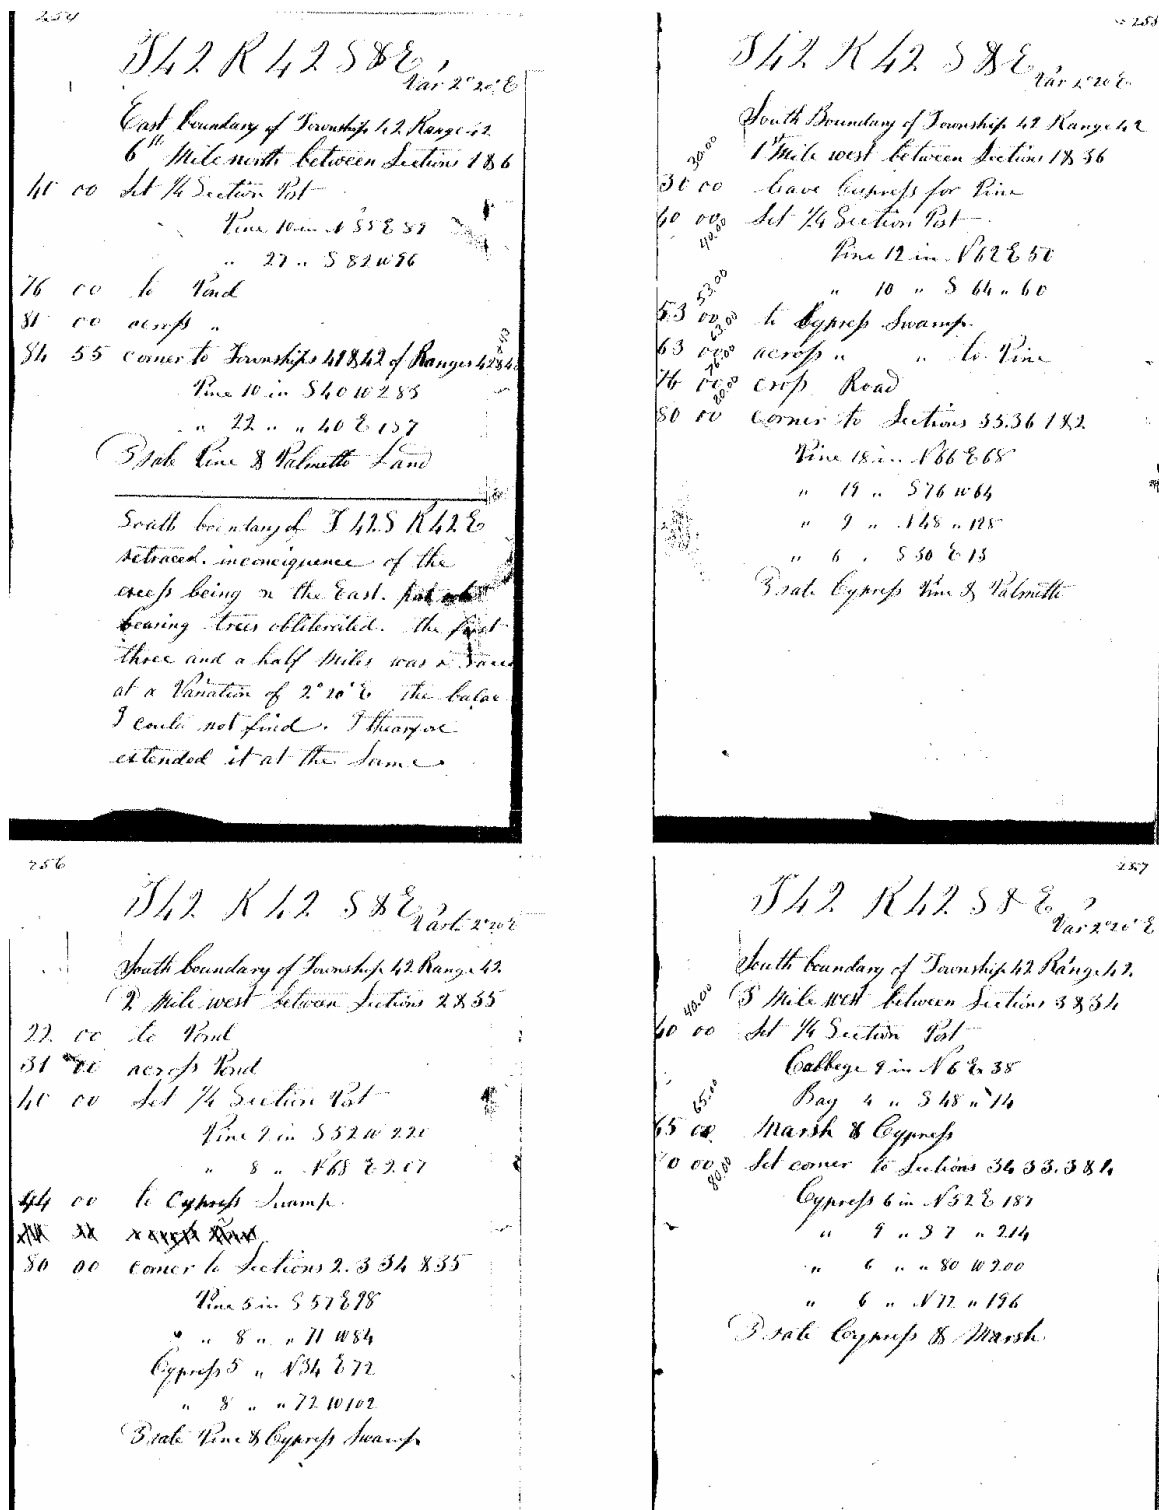 254
T42 R 42 S & E,
Var 2° 20' E
East boundary of Township 42 Range 42
6th Mile north between Sections 1 & 6
40 00 Set 1/4 Section Post
Pine 10 in N 55 E 89
" 27 " S 82 W 96
76 00 to Pond
81 00 across "
84 55 corner to Townships 41 & 42 of Ranges 42 & 43
Pine 10 in S 40 W 283
" 22 " " 40 E 137
3 rate Pine & Palmetto Land
South boundary of T 42 S R 42 E
retraced. inconciquence of the
excess being on the East.
bearing trees obliterated. the first
three and a half Miles was
at a Variation of 2° 20' E the
I could not find. I thearfore
extended it at the Same
255
T42 R 42 S & E,
Var 2° 20' E
South Boundary of Township 42 Range 42
1st Mile west between Sections 1 & 36
30.00
30 00 leave Cypress for Pine
40 00 Set 1/4 Section Post
40.00
Pine 12 in N 62 E 50
" 10 " S 64 " 60
53.00
53 00 to Cypress Swamp.
63.00
63 00 across " " to Pine
76.00
76 00 cross Road
80.00
80 00 corner to Sections 35. 36 1 & 2
Pine 18 in N 66 E 68
" 19 " S 76 W 64
" 9 " N 48 " 128
" 6 " S 30 E 13
3 rate Cypress Pine & Palmetto
256
T42 R 42 S & E,
Var. 2° 20' E
South boundary of Township 42 Range 42.
2 Mile west between Sections 2 & 35
22. 00 to Pond
31 00 across Pond
40 00 Set 1/4 Section Post
Pine 9 in S 52 W 220
" 8 " N 68 E 207
44 00 to Cypress Swamp.
80 00 corner to Sections 2. 3 34 & 35
Pine 5 in S 57 E 98
" " 8 " " 71 W 84
Cypress 5 " N 34 E 72
" 8 " " 72 W 102
3 rate Pine & Cypress Swamp
257
T42 R 42 S & E,
Var 2° 20' E
South boundary of Township 42 Range 42.
3 Mile west between Sections 3 & 34
40.00
40 00 Set 1/4 Section Post
Cabbege 9 in N 6 E 38
Bay 4 " S 48 " 14
65.00
65 00 Marsh & Cypress
80 00 Set corner to Sections 34 33. 3 & 4
80.00
Cypress 6 in N 52 E 187
" 9 " S 7 " 214
" 6 " " 80 W 200
" 6 " N 77 " 196
3 rate Cypress & Marsh.